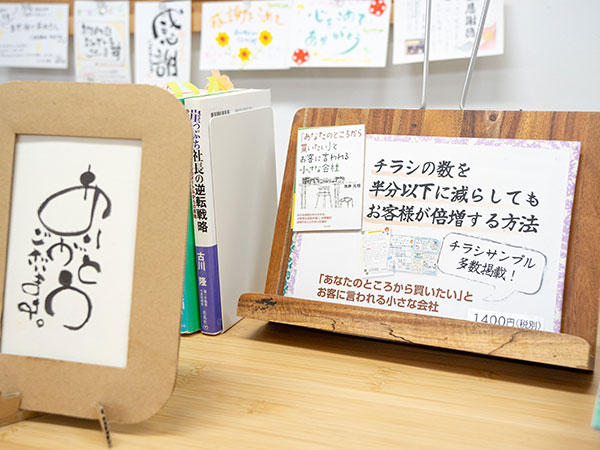 感謝
感謝を込めて
心をこめて
ありがとう
ありがとう
ございます。
崖っぷち社長の逆転戦略
古川 隆
「あなたのところから
買いたい」と
お客に言われる
小さな会社
チラシの数を
半分以下に減らしても
お客様が倍増する方法
チラシサンプル
多数掲載！
「あなたのところから買いたい」と
お客に言われる小さな会社
1400円(税別)